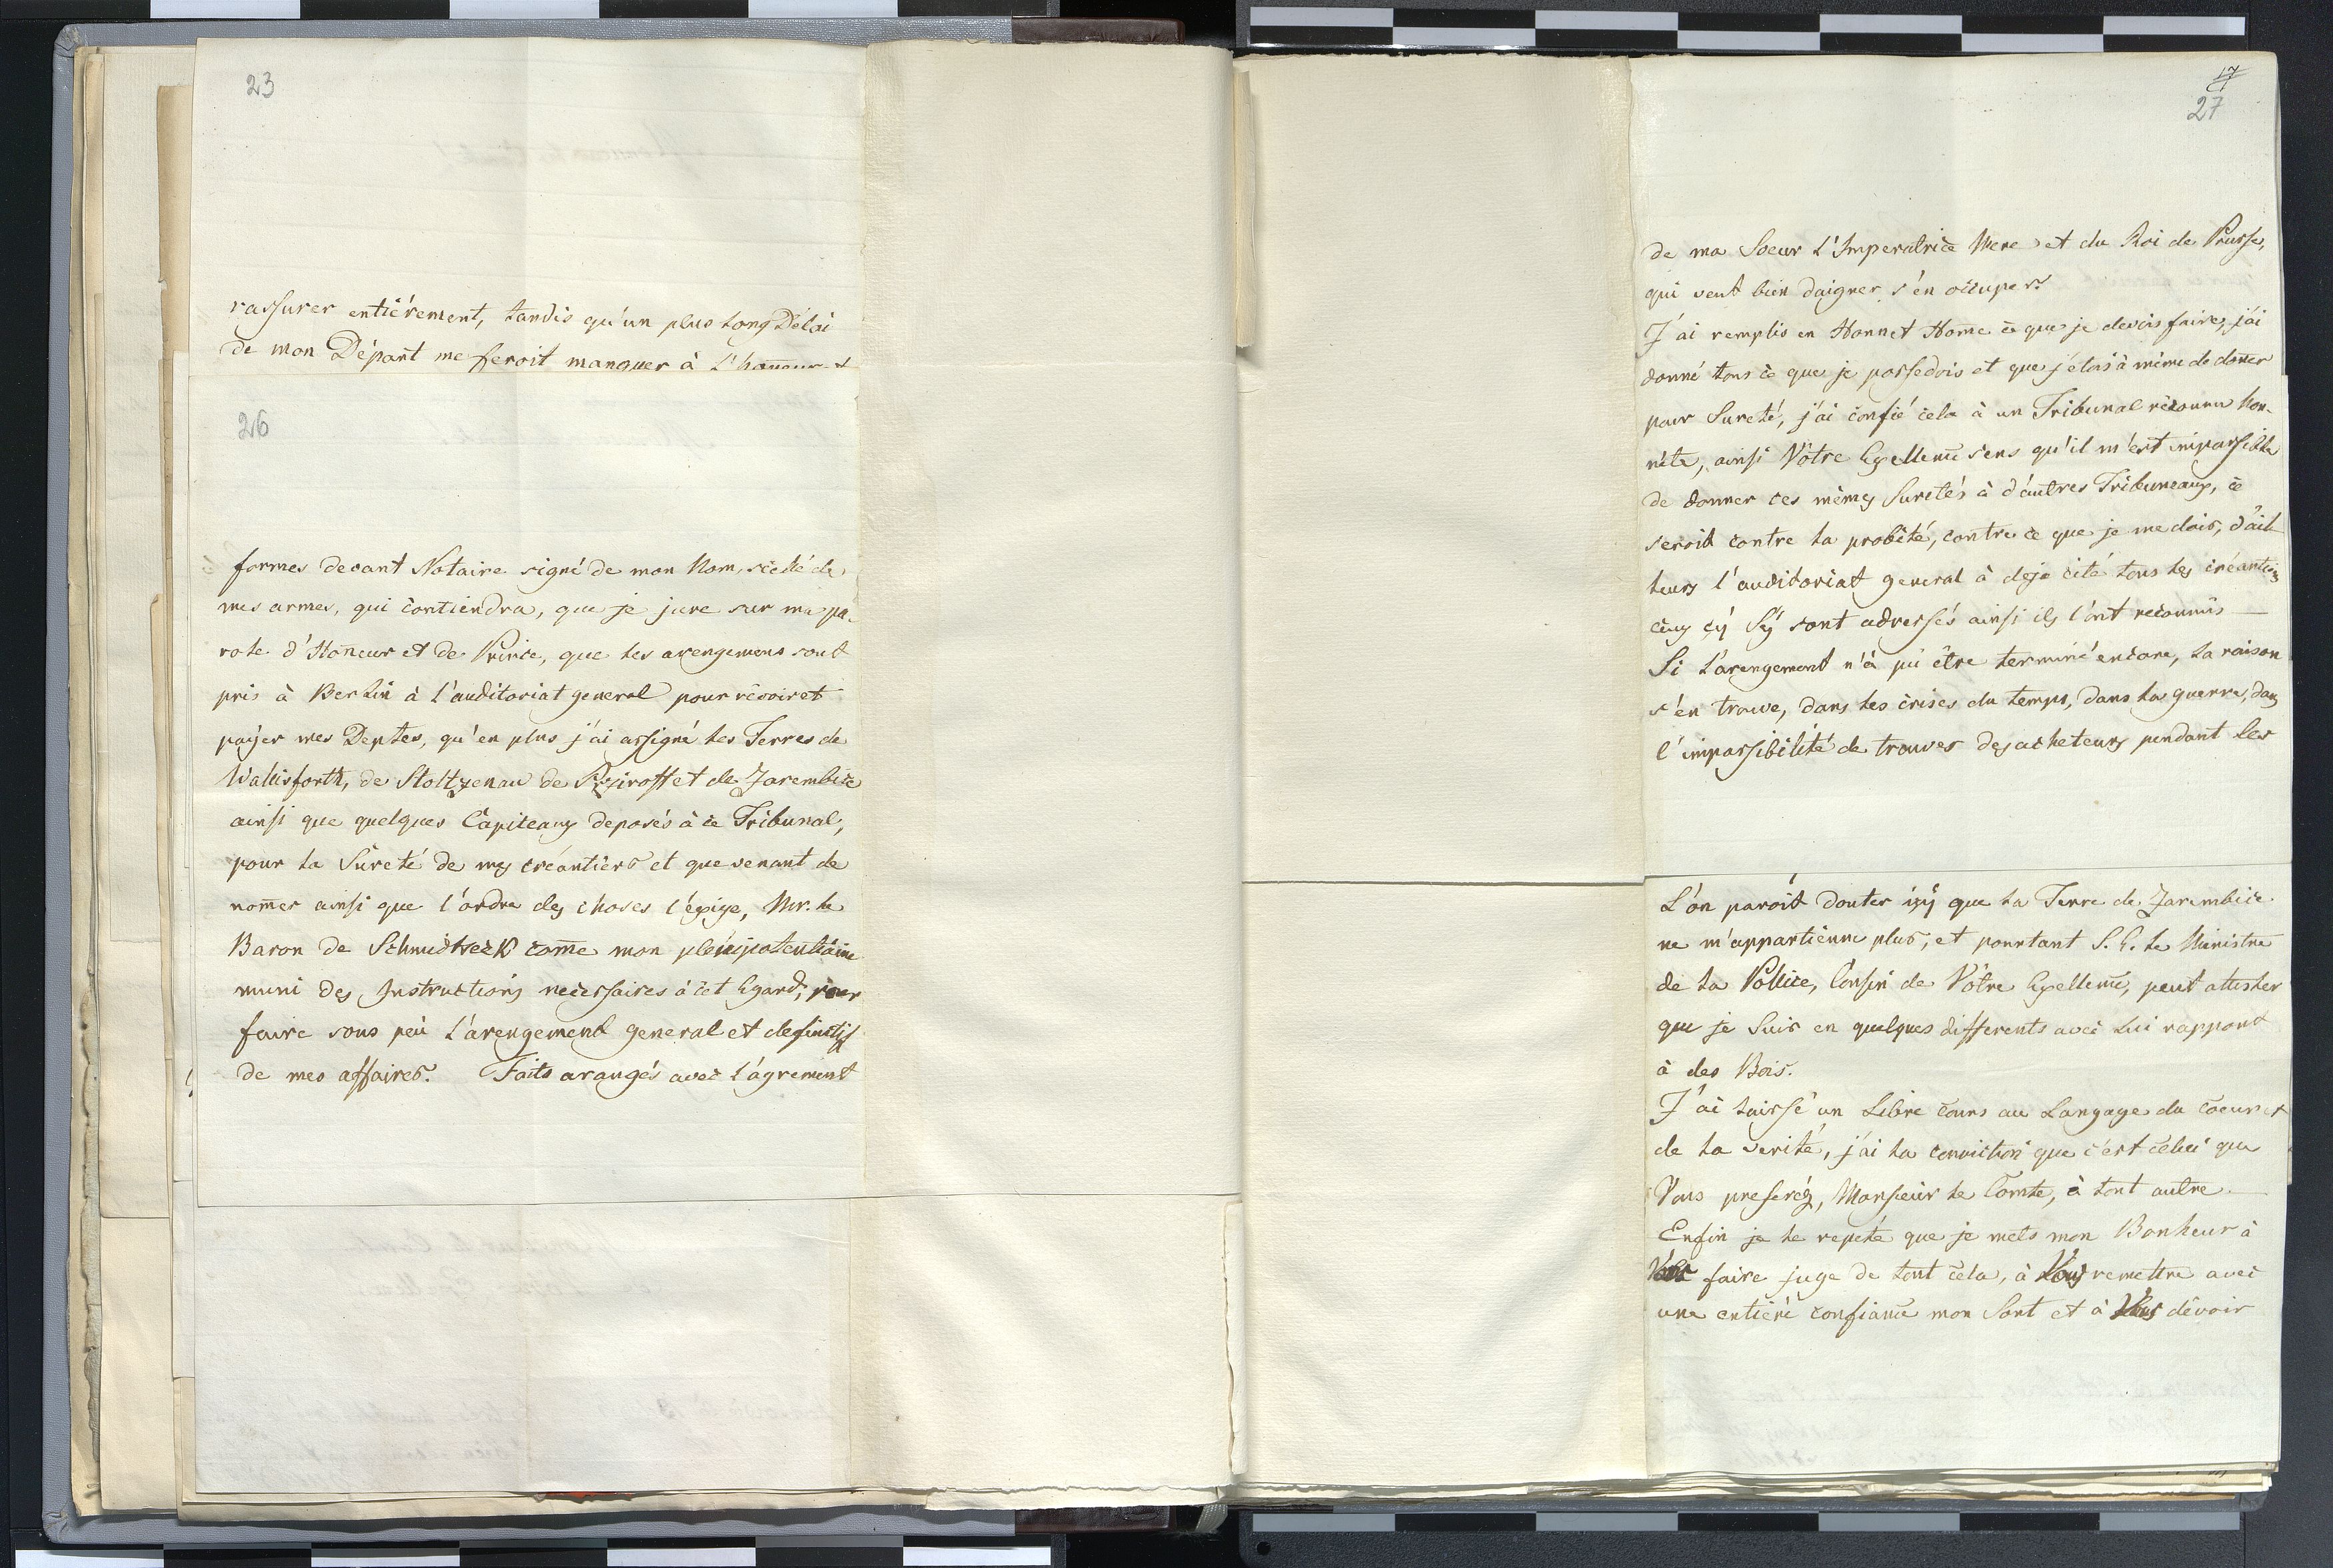 23
rassurer entiérement, tandis qu'un plus long Délai
de mon Départ me feroit manquer à l'honneur et
26
formes devant Notaire signé de mon Nom, scélé de
mes armes, qui contiendra, que je jure sur ma pa-
role d'Honeur et de Prince, que les arengemens sont
pris à Berlin à l'auditoriat general pour révoir et
payer mes Deptes, qu'en plus j'ai assigné les Terres de
Wallisforth, de Stoltzenau de et de Zarembice
ainsi que quelques Capiteaux deposés à ce Tribunal,
pour la Sûreté de mes créantiers et que venant de
nomer ainsi que l'ordre des choses l'éxige, Mr. le
Baron de Schmidtseck come mon plénipotentiaire
muni des Instructions necessaires à cet Egard, pour
faire sous peù l'arengement general et definitif
de mes affaires. Faits arangés avec l'ágrement
17
27
de ma Soeur L'Imperatrice Mere et du Roi de Prusse,
qui veut bien daigner s'én ocuper.
J'ai remplis en Honnet Home ce que je devois faire, j'ai
donné tous ce que je possedois et que j'étois à même de doner
pour Sureté, j'ai confié cela à un Tribunal réconnu hon-
nête, ainsi Vôtre Exellence sens qu'il m'est impossible
de donner ces mêmes Suretés à d'autres Tribuneaux, ce
seroit contre la probité, contre ce que je me dois, d'ail-
leurs l'auditoriat general à deja cité tous les créantiers
ceux çy s'y sont adressés ainsi ils l'ont reconnûs —
Si l'arengement n'à pû être terminé encore, la raison
s'én trouve, dans les crises du temps, dans la guerre, dans
l'impossibilité de trouver des acheteurs pendant les
L'on paroit douter içy que la Terre de Zarembice
ne m'appartienne plus, et pourtant S. E. le Ministre
de la Pollice, Cousin de Vôtre Exellence, peut attester
que je suis en quelques differents avec Lui rapport
à des Bois.
J'ai laissé un Libre cours au Langage du coeur et
de la verité, j'ai la conviction que c'est celui que
Vous preferéz, Monsieur le Comte, à tout autre.
Enfin je le repete que je mets mon Bonheur à
Vous faire juge de tout cela, à Vous remettre avec
une entiére confiance mon Sort et à Vous dévoir